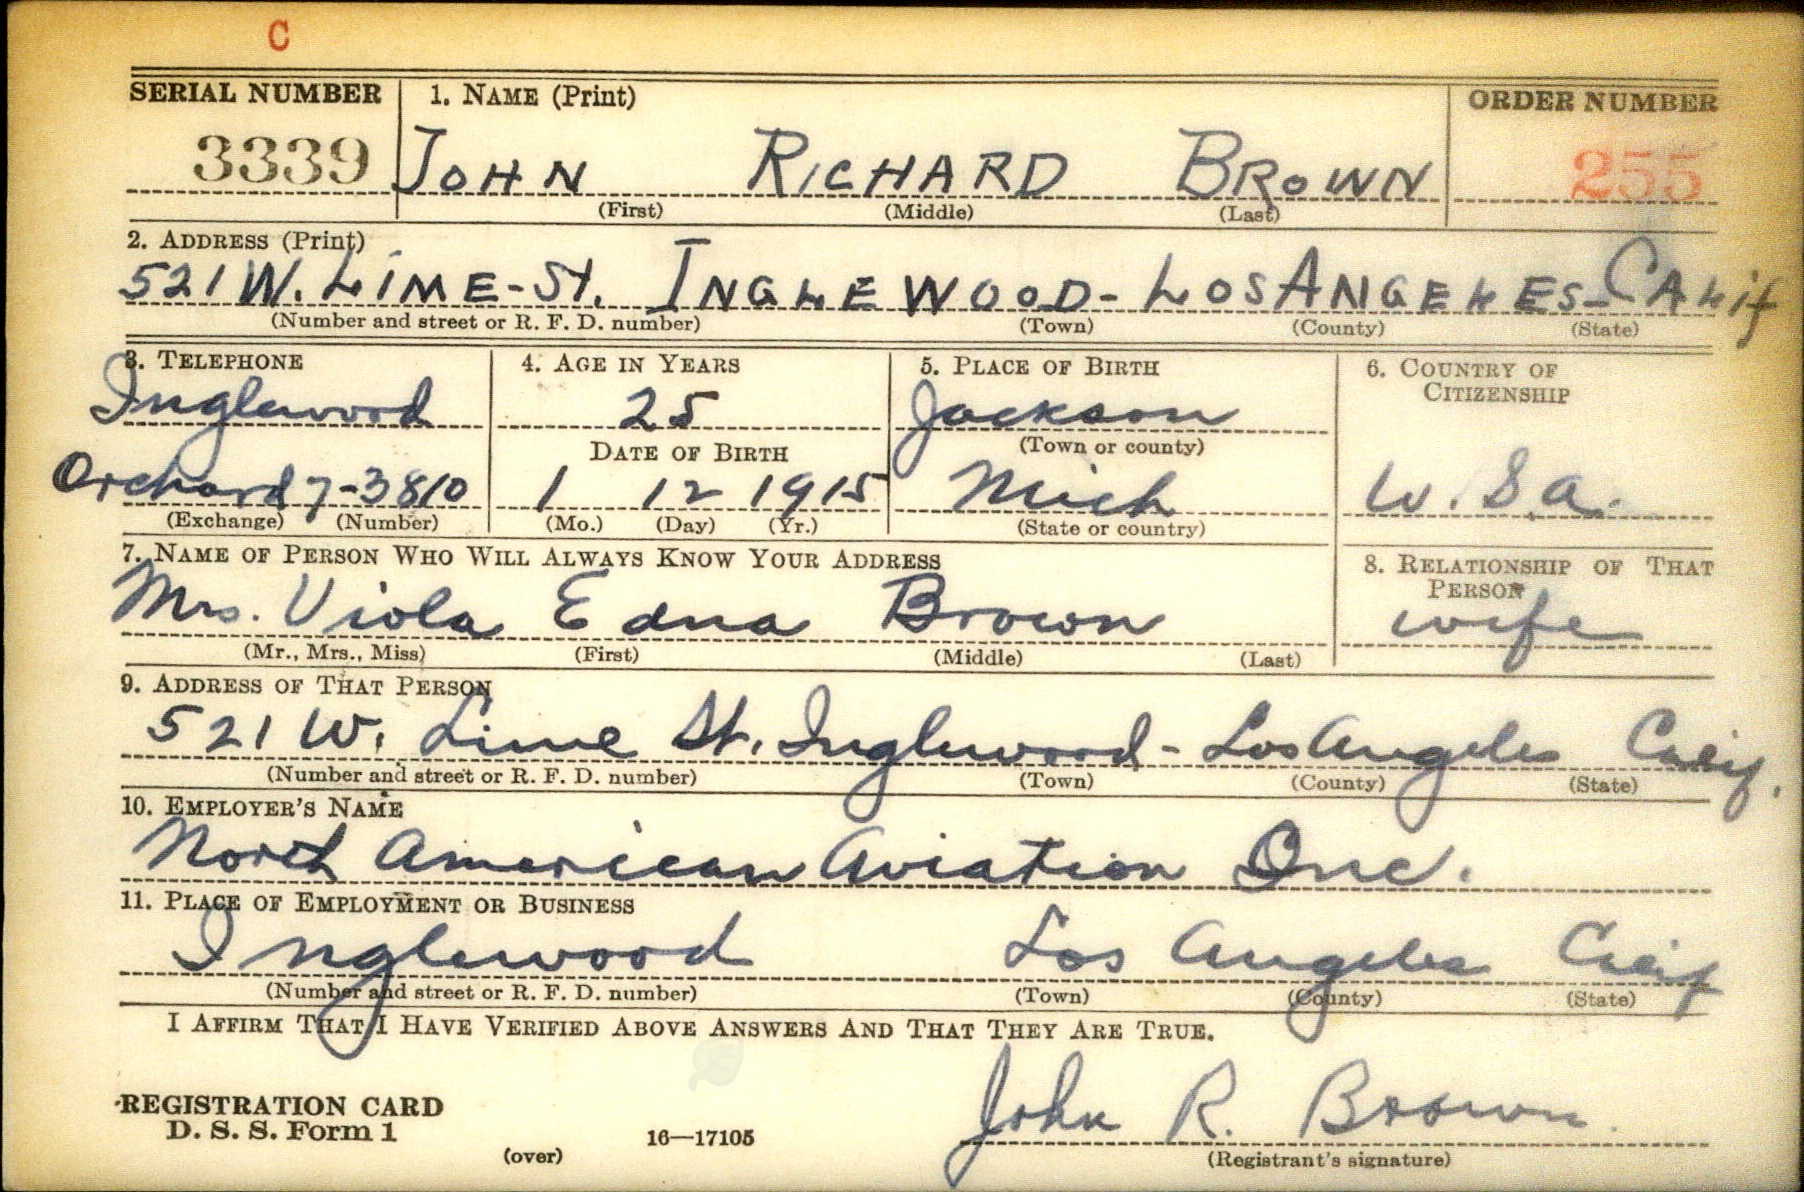 C
SERIAL NUMBER 1. NAME (Print) ORDER NUMBER
3339 JOHN RICHARD BROWN 255
(First) (Middle) (Last)
2. ADDRESS (Print)
521 W. LIME-St. INGLEWOOD-LOS ANGELES-CALif
(Number and street or R. F. D. number) (Town) (County) (State)
3. TELEPHONE 4. AGE IN YEARS 5. PLACE OF BIRTH 6. COUNTRY OF
CITIZENSHIP
Inglewood 25 Jackson
DATE OF BIRTH (Town or county)
Orchard 7-3810 1 12 1915 Mich U.S.A.
(Exchange) (Number) (Mo.) (Day) (Yr.) (State or country)
7. NAME OF PERSON WHO WILL ALWAYS KNOW YOUR ADDRESS 8. RELATIONSHIP OF THAT
PERSON
Mrs. Viola Edna Brown wife
(Mr., Mrs., Miss) (First) (Middle) (Last)
9. ADDRESS OF THAT PERSON
521 W. Lime St. Inglewood-Los Angeles Calif.
(Number and street or R. F. D. number) (Town) (County) (State)
10. EMPLOYER'S NAME
North American Aviation Inc.
11. PLACE OF EMPLOYMENT OR BUSINESS
Inglewood Los Angeles Calif
(Number and street or R. F. D. number) (Town) (County) (State)
I AFFIRM THAT I HAVE VERIFIED ABOVE ANSWERS AND THAT THEY ARE TRUE.
John R. Brown
REGISTRATION CARD
D. S. S. Form 1 16—17105
(over) (Registrant's signature)